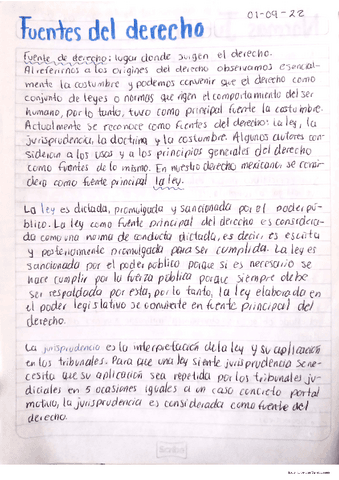 01-09-22
Fuentes del derecho
Fuente de derecho: lugar donde surgen el derecho.
Al referirnos a los origines del derecho observamos esencial-
mente la costumbre y podemos convenir que el derecho como
conjunto de leyes o normas que rigen el comportamiento del ser
humano, por lo tanto, tuvo como principal fuente la costumbre.
Actualmente se reconoce como fuentes del derecho: la ley, la
jurisprudencia, la doctrina y la costumbre. Algunos autores con-
sideran a los usos y a los principios generales del derecho
como fuentes de lo mismo. En nuestro derecho mexicano, se consi-
dera como fuente principal la ley.
La ley es dictada, promulgada y sancionada por el poder pú-
blico. La ley como fuente principal del derecho es considera-
da como una norma de conducta dictada, es decir, es escrita
y posteriormente promulgada para ser cumplida. La ley es
sancionada por el poder público porque si es necesario se
hace cumplir por la fuerza pública porque siempre debe
ser respaldada por esta, por lo tanto, la ley elaborada en
el poder legislativo se convierte en fuente principal del
derecho.
La jurisprudencia es la interpretación de la ley y su aplicación
en los tribunales. Para que una ley siente jurisprudencia se ne-
cesita que su aplicación sea repetida por los tribunales ju-
diciales en 5 ocasiones iguales a un caso concreto por tal
motivo, la jurisprudencia es considerada como fuente del
derecho.
Scribe